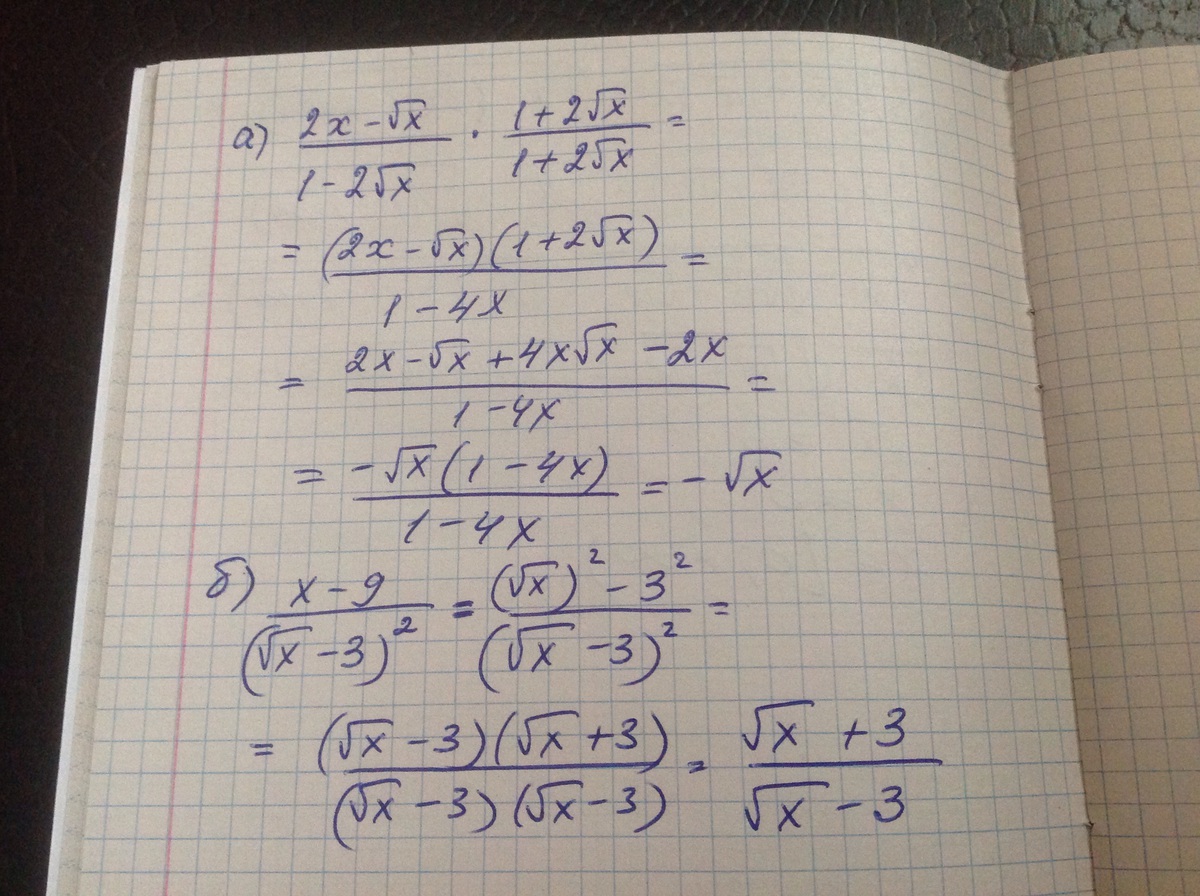 а) (2x - √x)/(1 - 2√x) · (1 + 2√x)/(1 + 2√x) =
= ((2x - √x)(1 + 2√x))/(1 - 4x) =
= (2x - √x + 4x√x - 2x)/(1 - 4x) =
= (-√x(1 - 4x))/(1 - 4x) = - √x
б) (x - 9)/(√x - 3)² = ((√x)² - 3²)/(√x - 3)² =
= ((√x - 3)(√x + 3))/((√x - 3)(√x - 3)) = (√x + 3)/(√x - 3)